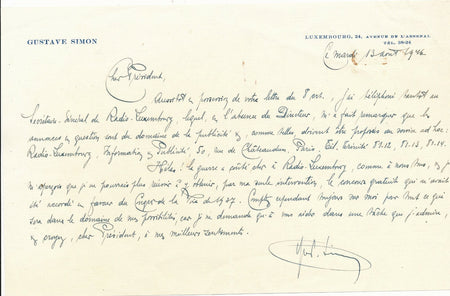 GUSTAVE SIMON
LUXEMBOURG, 24, AVENUE DE L'ARSENAL
TÉL. 39-24
Ce mardi 13 août 1946
Cher Président,
Aussitôt en possession de votre lettre du 8 crt, j'ai téléphoné au
Secrétaire Général de Radio-Luxembourg, lequel, en l'absence du Directeur, m'a fait remarquer que les
annonces en question sont du domaine de la publicité et, comme telles, doivent être proposées au service ad hoc:
Radio-Luxembourg, Information et Publicité, 50, rue de Châteaudun, Paris. Tél. Trinité 53.12, 53.13, 53.14.
Hélas! la guerre a coûté cher à Radio-Luxembourg, comme à nous tous, et j
m'aperçois que je ne pourrais plus arriver à y obtenir, par ma seule intervention, le concours gratuit qui m'avait
été accordé en faveur du Congrès de la Paix de 1937. Comptez cependant toujours sur moi pour tout ce qui
sera dans le domaine de mes possibilités car je ne demande qu'à vous aider dans une tâche que j'admire,
et croyez, cher Président, à mes meilleurs sentiments.